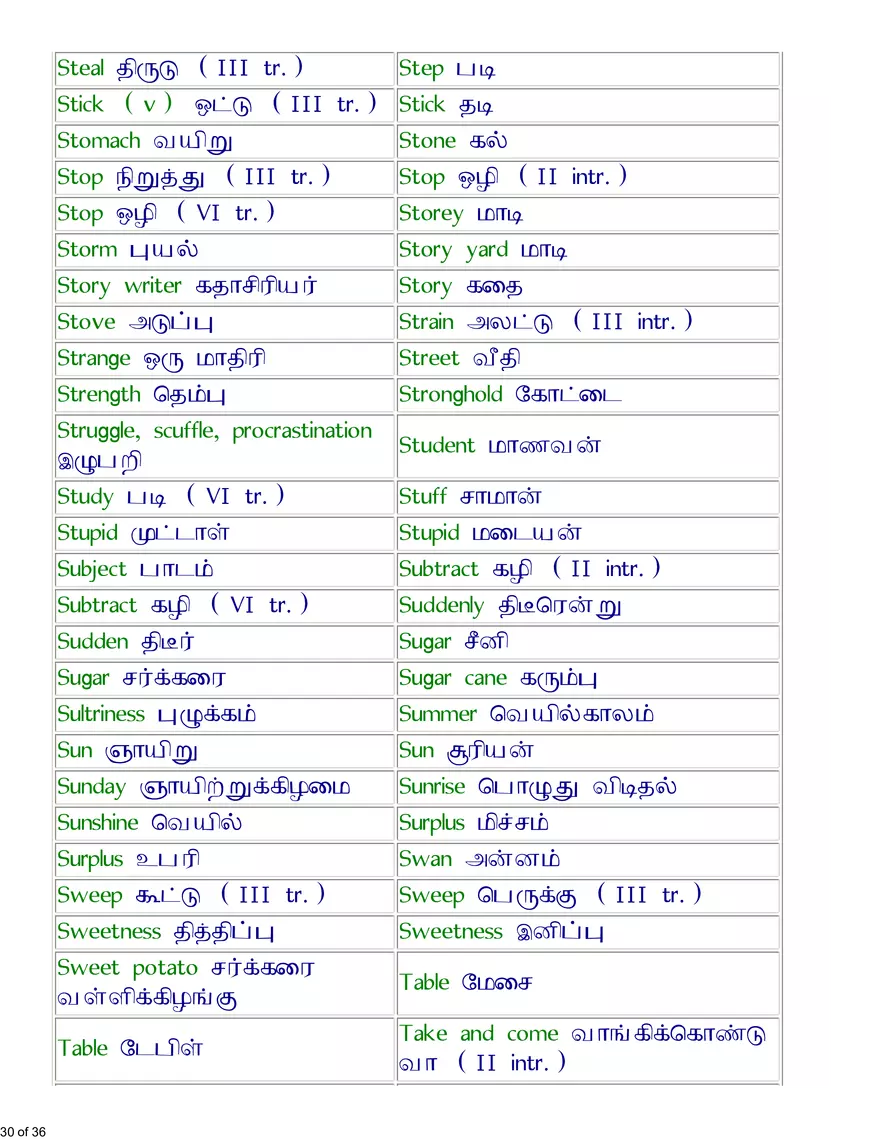 Steal திருடு ( III tr. ) Step படி
Stick ( v ) ஒட்டு ( III tr. ) Stick தடி
Stomach வயிறு Stone கல்
Stop நிறுத்து ( III tr. ) Stop ஒழி ( II intr. )
Stop ஒழி ( VI tr. ) Storey மாடி
Storm புயல் Story yard மாடி
Story writer கதாசிரியர் Story கதை
Stove அடுப்பு Strain அலட்டு ( III intr. )
Strange ஒரு மாதிரி Street வீதி
Strength தெம்பு Stronghold கோட்டை
Struggle, scuffle, procrastination
இழுபறி
Student மாணவன்
Study படி ( VI tr. ) Stuff சாமான்
Stupid முட்டாள் Stupid மடையன்
Subject பாடம் Subtract கழி ( II intr. )
Subtract கழி ( VI tr. ) Suddenly திடீரென்று
Sudden திடீர் Sugar சீனி
Sugar சர்க்கரை Sugar cane கரும்பு
Sultriness புழுக்கம் Summer வெயில்காலம்
Sun ஞாயிறு Sun சூரியன்
Sunday ஞாயிற்றுக்கிழமை Sunrise பொழுது விடிதல்
Sunshine வெயில் Surplus மிச்சம்
Surplus உபரி Swan அன்னம்
Sweep கூட்டு ( III tr. ) Sweep பெருக்கு ( III tr. )
Sweetness தித்திப்பு Sweetness இனிப்பு
Sweet potato சர்க்கரை
வள்ளிக்கிழங்கு
Table மேசை
Table டேபிள்
Take and come வாங்கிக்கொண்டு
வா ( II intr. )
30 of 36